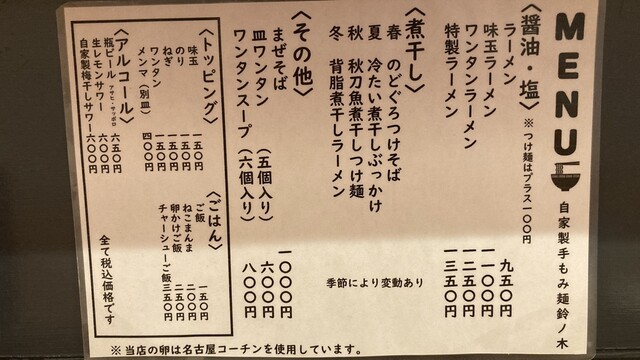 MENU
自家製手もみ麺鈴ノ木
〈醤油・塩〉
※つけ麺はプラス一〇〇円
ラーメン 九五〇円
味玉ラーメン 一一〇〇円
ワンタンラーメン 一二五〇円
特製ラーメン 一三五〇円
〈煮干し〉
春 のどぐろつけそば
夏 冷たい煮干しぶっかけ
秋 秋刀魚煮干しつけ麺
冬 背脂煮干しラーメン
季節により変動あり
〈その他〉
まぜそば 一〇〇〇円
皿ワンタン(五個入り) 六〇〇円
ワンタンスープ(六個入り) 八〇〇円
〈トッピング〉
味玉 一五〇円
のり 一五〇円
ねぎ 一五〇円
ワンタン 一五〇円
メンマ(別皿) 四〇〇円
〈アルコール〉
瓶ビール アサヒ・サッポロ 六五〇円
生レモンサワー 六〇〇円
自家製梅干しサワー 六〇〇円
〈ごはん〉
ご飯 一五〇円
ねこまんま 二〇〇円
卵かけご飯 二五〇円
チャーシューご飯 三五〇円
全て税込価格です
※当店の卵は名古屋コーチンを使用しています。